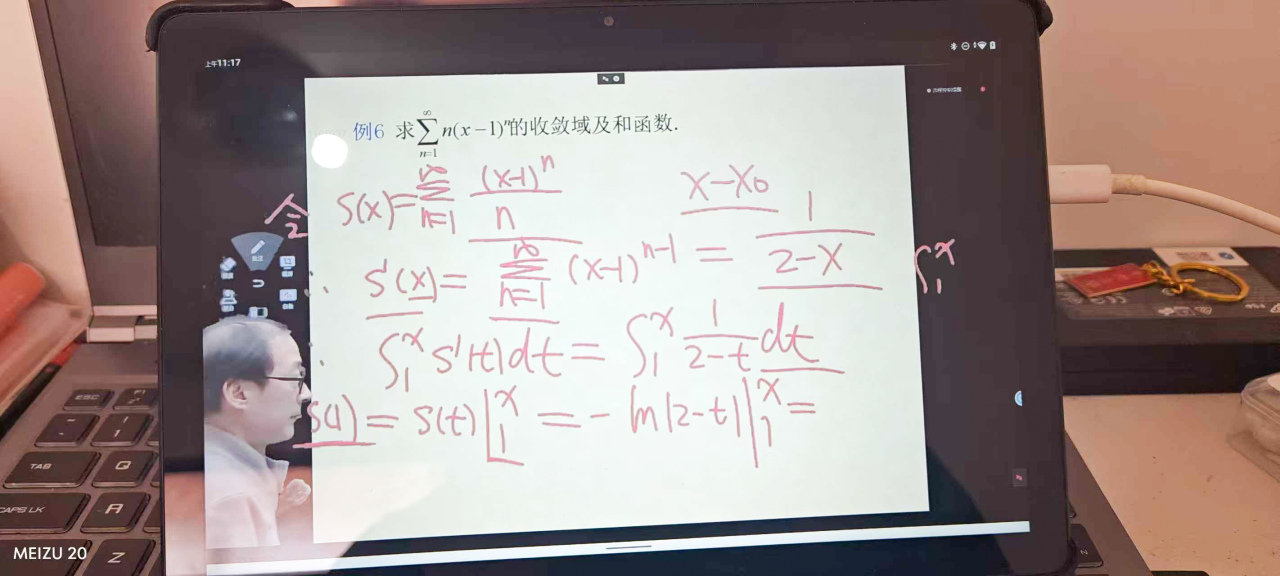 上午11:17
例6 求∑_{n=1}^{∞} n(x-1)^n的收敛域及和函数.
S(x)=∑_{n=1}^{∞} (x-1)^n / n    x-x₀
令
S'(x)=∑_{n=1}^{∞} (x-1)^{n-1} = 1/(2-x)    ∫_1^x
∫_1^x S'(t)dt = ∫_1^x 1/(2-t) dt
S(1) = S(t)|_1^x = -ln|2-t||_1^x =
ESC
TAB
Q
CAPS LK
A
Z
N
MEIZU 20